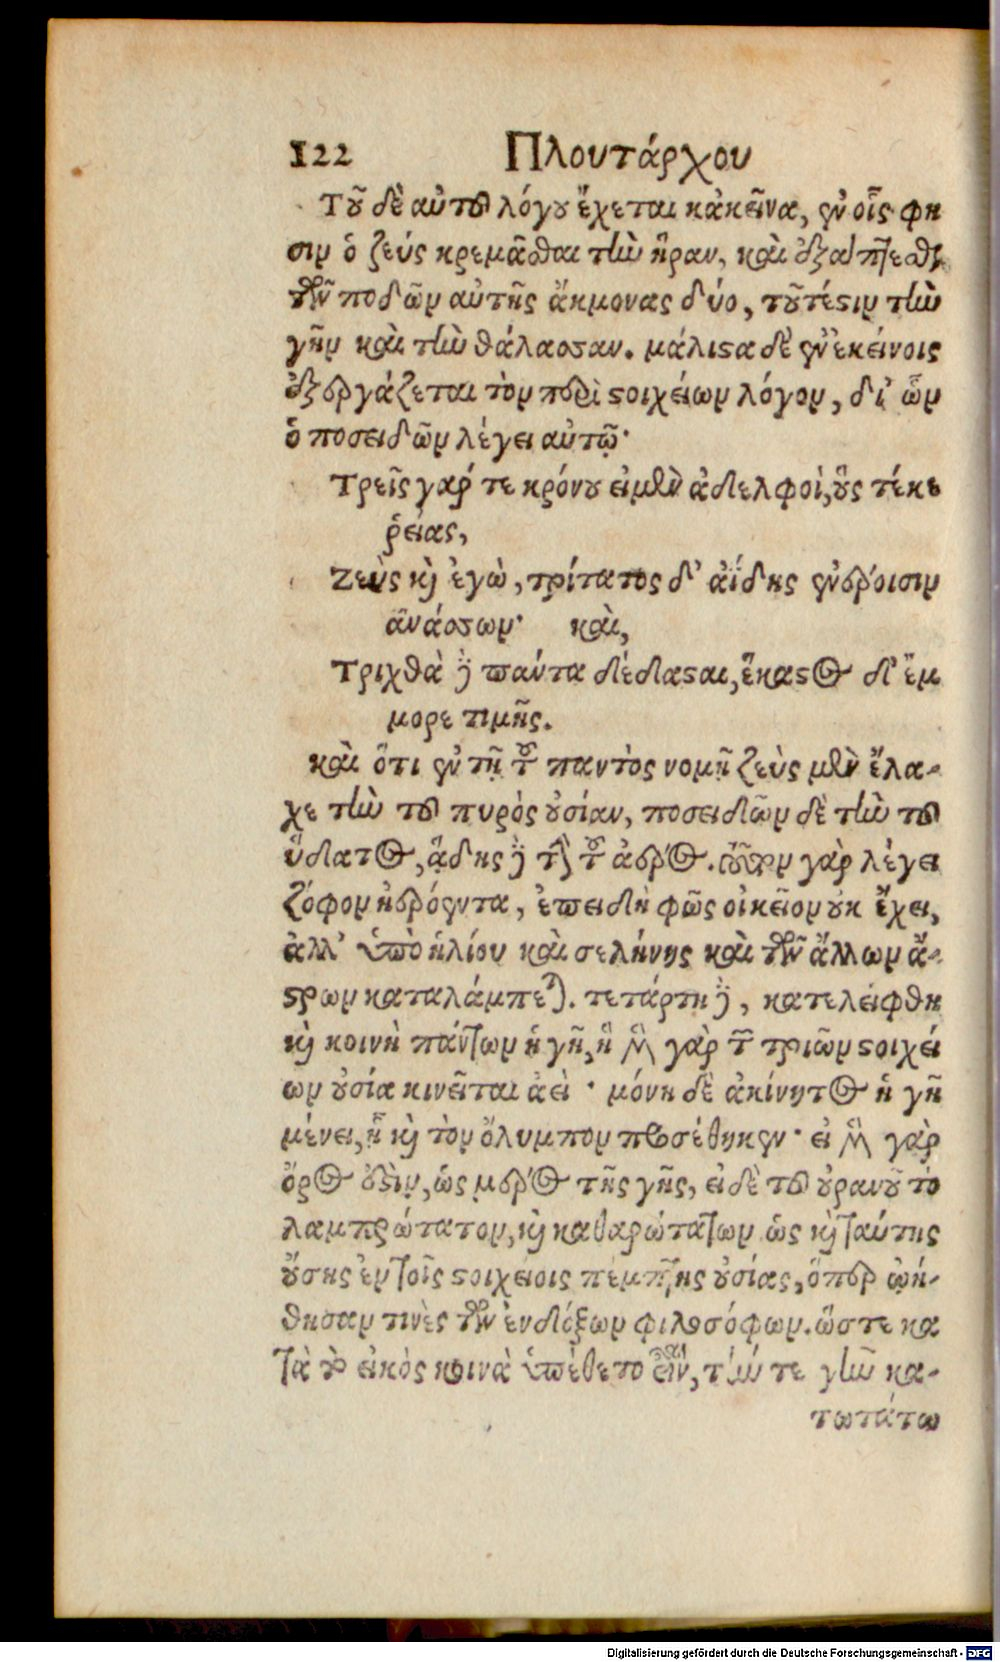 122 Πλουτάρχου
Τοῦ δὲ αὐτοῦ λόγου ἔχεται κἀκεῖνα, ἐν οἷς φη
σιν ὁ ζεύς κρεμᾶσθαι τὴν ἥραν, καὶ ἐξαπῆφθαι
τῶν ποδῶν αὐτῆς ἄκμονας δύο, τοῦτέστιν τὴν
γῆν καὶ τὴν θάλασσαν. μάλιστα δὲ ἐν ἐκείνοις
ἐξεργάζεται τὸν περὶ στοιχείων λόγον, δι' ὧν
ὁ ποσειδῶν λέγει αὐτῷ·
Τρεῖς γαρ́ τε κρόνου εἰμὲν ἀδελφοὶ, οὓς τέκε
ῥείας,
Ζεὺς καὶ ἐγὼ, τρίτατος δ' ἀΐδης ἐνέροισιν
ἀνάσσων· καὶ,
Τριχθὰ δὲ πάντα δέδασται, ἕκαστος δ' ἔμ
μορε τιμῆς.
καὶ ὅτι ἐν τῇ τοῦ παντὸς νομῇ ζεὺς μὲν ἔλα-
χε τὴν τοῦ πυρὸς οὐσίαν, ποσειδῶν δὲ τὴν τοῦ
ὕδατος, ᾅδης δὲ τὴν τοῦ ἀέρος. τοῦτον γὰρ λέγει
ζόφον ἠερόεντα, ἐπειδὴ φῶς οἰκεῖον οὐκ ἔχει,
ἀλλ' ὑπὸ ἡλίου καὶ σελήνης καὶ τῶν ἄλλων ἄ-
στρων καταλάμπεται. τετάρτη δὲ, κατελείφθη
καὶ κοινὴ πάντων ἡ γῆ, ἡ μὲν γὰρ τῶν τριῶν στοιχεί
ων οὐσία κινεῖται ἀεί· μόνη δὲ ἀκίνητος ἡ γῆ
μένει, ᾗ καὶ τὸν ὄλυμπον προσέθηκεν· εἰ μὲν γὰρ
ὄρος ἐστὶν, ὡς μέρος τῆς γῆς, εἰ δὲ τοῦ οὐρανοῦ τὸ
λαμπρώτατον, καὶ καθαρώτατων ὡς καὶ ταύτης
οὔσης ἐν τοῖς στοιχείοις πέμπτης οὐσίας, ὅπερ ᾠή-
θησαν τινὲς τῶν ἐνδόξων φιλοσόφων. ὥστε κα
τὰ τὸ εἰκὸς κοινὰ ὑπέθετο εἶναι, τήν τε γῆν κα-
τωτάτω
Digitalisierung gefördert durch die Deutsche Forschungsgemeinschaft - DFG